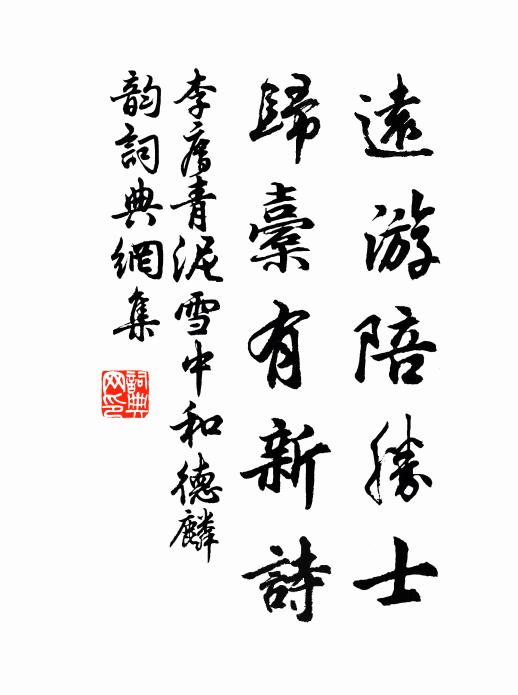 遠游陪勝士
歸橐有新詩
李廌青泥雪中和德麟
韵詞典網集
詞典
网印